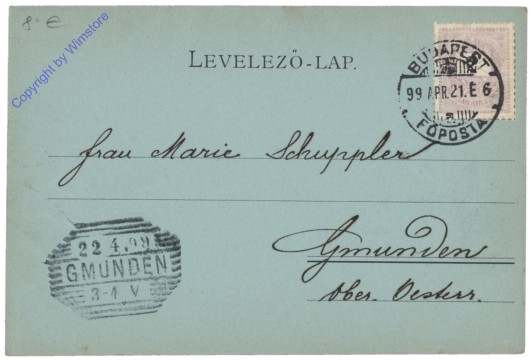 8.- €
Copyright by Wimstore
LEVELEZŐ-LAP.
BUDAPEST
99 APR. 21. E 6
FŐPOSTA
Frau Marie Schuppler
22 4.99
GMUNDEN
3-4 V
Gmunden
Ober. Oesterr.